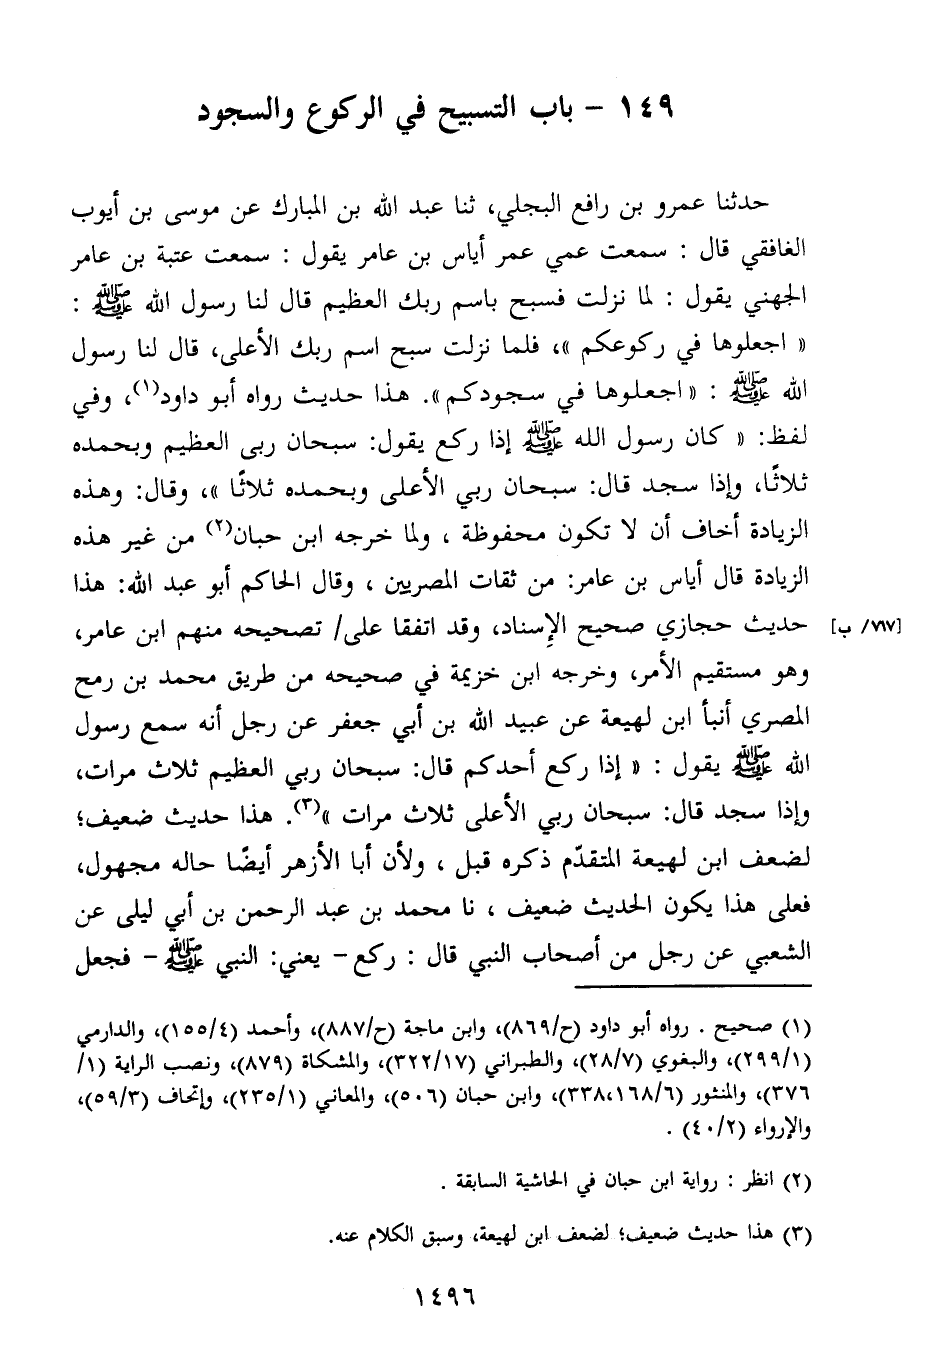 ١٤٩ – باب التسبيح في الركوع والسجود
حدثنا عمرو بن رافع البجلي، ثنا عبد الله بن المبارك عن موسى بن أيوب
الغافقي قال : سمعت عمي عمر أياس بن عامر يقول : سمعت عتبة بن عامر
الجهني يقول : لما نزلت فسبح باسم ربك العظيم قال لنا رسول الله ﷺ :
« اجعلوها في ركوعكم »، فلما نزلت سبح اسم ربك الأعلى، قال لنا رسول
الله ﷺ : « اجعلوها في سجودكم ». هذا حديث رواه أبو داود(١)، وفي
لفظ: « كان رسول الله ﷺ إذا ركع يقول: سبحان ربى العظيم وبحمده
ثلاثًا، وإذا سجد قال: سبحان ربي الأعلى وبحمده ثلاثًا »، وقال: وهذه
الزيادة أخاف أن لا تكون محفوظة ، ولما خرجه ابن حبان(٢) من غير هذه
الزيادة قال أياس بن عامر: من ثقات المصريين ، وقال الحاكم أبو عبد الله: هذا
حديث حجازي صحيح الإسناد، وقد اتفقا على/ تصحيحه منهم ابن عامر، [٧٦٧/ ب]
وهو مستقيم الأمر، وخرجه ابن خزيمة في صحيحه من طريق محمد بن رمح
المصري أنبأ ابن لهيعة عن عبيد الله بن أبي جعفر عن رجل أنه سمع رسول
الله ﷺ يقول : « إذا ركع أحدكم قال: سبحان ربي العظيم ثلاث مرات،
وإذا سجد قال: سبحان ربي الأعلى ثلاث مرات »(٣). هذا حديث ضعيف؛
لضعف ابن لهيعة المتقدّم ذكره قبل ، ولأن أبا الأزهر أيضًا حاله مجهول،
فعلى هذا يكون الحديث ضعيف ، نا محمد بن عبد الرحمن بن أبي ليلى عن
الشعبي عن رجل من أصحاب النبي قال : ركع – يعني: النبي ﷺ – فجعل
(١) صحيح . رواه أبو داود (ح/٨٦٩)، وابن ماجة (ح/٨٨٧)، وأحمد (١٥٥/٤)، والدارمي
(٢٩٩/١)، والبغوي (٢٨/٧)، والطبراني (٣٢٢/١٧)، والمشكاة (٨٧٩)، ونصب الراية (١/
٣٧٦)، والمنثور (٣٣٨،١٦٨/٦)، وابن حبان (٥٠٦)، والمعاني (٢٣٥/١)، وإتحاف (٥٩/٣)،
والإرواء (٤٠/٢) .
(٢) انظر : رواية ابن حبان في الحاشية السابقة .
(٣) هذا حديث ضعيف؛ لضعف ابن لهيعة، وسبق الكلام عنه.
١٤٩٦